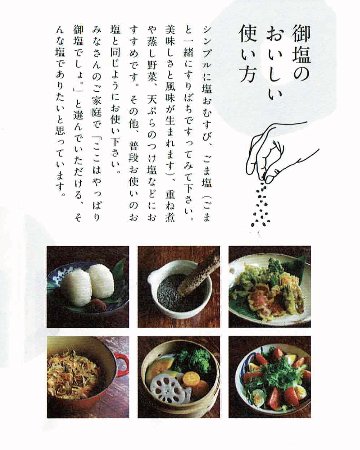 御塩の
おいしい
使い方
シンプルに塩おむすび、ごま塩（ごま
と一緒にすりばちですってみて下さい。
美味しさと風味が生まれます）、重ね煮
や蒸し野菜、天ぷらのつけ塩などにお
すすめです。その他、普段お使いのお
塩と同じようにお使い下さい。
みなさんのご家庭で「ここはやっぱり
御塩でしょ。」と選んでいただける、そ
んな塩でありたいと思っています。